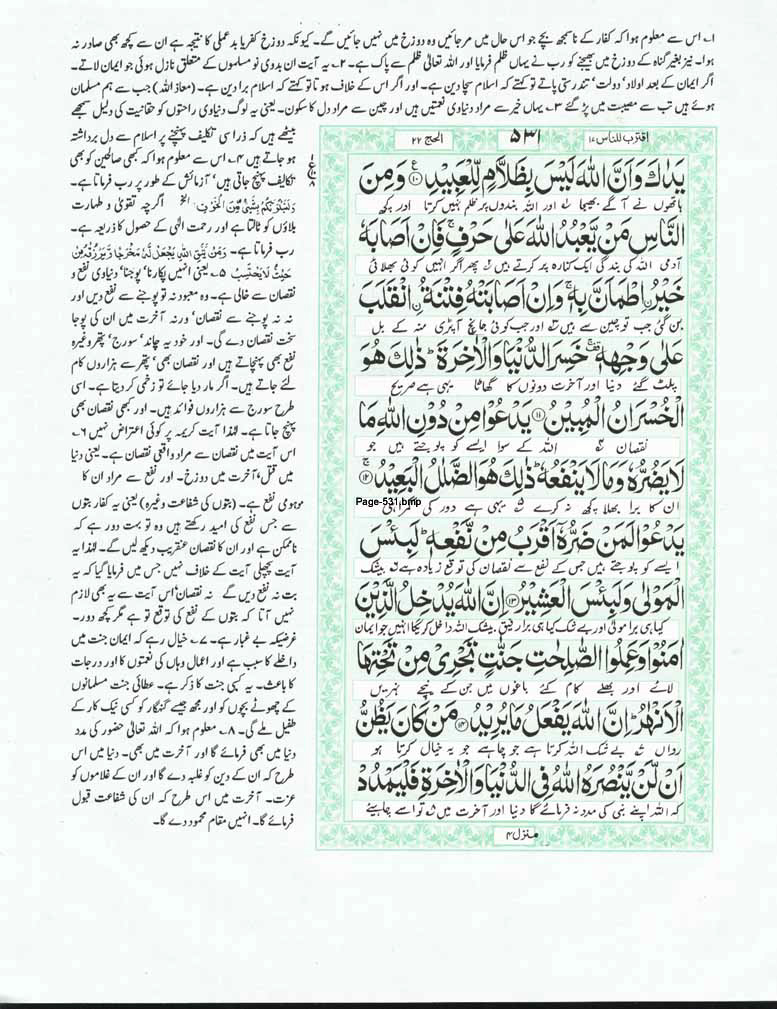 ۱۔ اس سے معلوم ہوا کہ کفار کے ناسمجھ بچے جو اس حال میں مر جائیں وہ دوزخ میں نہیں جائیں گے۔ کیونکہ دوزخ کفر یا بد عملی کا نتیجہ ہے ان سے کچھ بھی صادر نہ
ہوا۔ نیز بغیر گناہ کے دوزخ میں بھیجنے کو رب نے یہاں ظلم فرمایا اور اللہ تعالیٰ ظلم سے پاک ہے۔ ۲۔ یہ آیت ان بدوی نو مسلموں کے متعلق نازل ہوئی جو ایمان لاتے۔
اگر ایمان کے بعد اولاد' دولت' تندرستی پاتے تو کہتے کہ اسلام سچا دین ہے۔ اور اگر اس کے خلاف ہوتا تو کہتے کہ اسلام برا دین ہے۔ (معاذ اللہ) جب سے ہم مسلمان
ہوئے ہیں تب سے مصیبت میں پڑ گئے ۳۔ یہاں خیر سے مراد دنیاوی نعمتیں ہیں اور چین سے مراد دل کا سکون۔ یعنی یہ لوگ دنیاوی راحتوں کو حقانیت کی دلیل سمجھے
بیٹھے ہیں کہ ذرا سی تکلیف پہنچنے پر اسلام سے دل برداشتہ
ہو جاتے ہیں ۴۔ اس سے معلوم ہوا کہ کبھی صالحین کو بھی
تکالیف پہنچ جاتی ہیں' آزمائش کے طور پر رب فرماتا ہے۔
وَلَنَبْلُوَنَّكُمْ بِشَيْءٍ مِّنَ الْخَوْفِ الخ اگرچہ تقویٰ و طہارت
بلاؤں کو ٹالتا ہے اور رحمت الٰہی کے حصول کا ذریعہ ہے۔
رب فرماتا ہے۔ وَمَنْ يَّتَّقِ اللهَ يَجْعَلْ لَّهُ مَخْرَجًا وَّيَرْزُقْهُ مِنْ
حَيْثُ لَا يَحْتَسِبُ ۵۔ یعنی انہیں پکارنا' پوجنا' دنیاوی نفع و
نقصان سے خالی ہے۔ وہ معبود نہ تو پوجنے سے نفع دیں اور
نہ نہ پوجنے سے نقصان' ورنہ آخرت میں ان کی پوجا
سخت نقصان دے گی۔ اور خود یہ چاند' سورج' پتھر وغیرہ
نفع بھی پہنچاتے ہیں اور نقصان بھی' پتھر سے ہزاروں کام
لئے جاتے ہیں۔ اگر مار دیا جائے تو زخمی کر دیتا ہے۔ اسی
طرح سورج سے ہزاروں فوائد ہیں۔ اور کبھی نقصان بھی
پہنچ جاتا ہے۔ لہٰذا آیت کریمہ پر کوئی اعتراض نہیں ۶۔
اس آیت میں نقصان سے مراد واقعی نقصان ہے۔ یعنی دنیا
میں قتل' آخرت میں دوزخ۔ اور نفع سے مراد ان کا
موہومی نفع ہے۔ (بتوں کی شفاعت وغیرہ) یعنی یہ کفار بتوں
سے جس نفع کی امید رکھتے ہیں وہ تو بہت دور ہے کہ
ناممکن ہے اور ان کا نقصان عنقریب دیکھ لیں گے۔ لہٰذا یہ
آیت پچھلی آیت کے خلاف نہیں جس میں فرمایا گیا کہ یہ
بت نہ نفع دیں گے نہ نقصان' اس آیت سے یہ بھی لازم
نہیں آتا کہ بتوں کے نفع کی توقع تو ہے مگر کچھ دور۔
غرضیکہ بے غبار ہے۔ ۷۔ خیال رہے کہ ایمان جنت میں
داخلے کا سبب ہے اور اعمال وہاں کی نعمتوں کا اور درجات
کا باعث۔ یہ کسبی جنت کا ذکر ہے۔ عطائی جنت مسلمانوں
کے چھوٹے بچوں کو اور مجھ جیسے گنہگار کو کسی نیک کار کے
طفیل ملے گی۔ ۸۔ معلوم ہوا کہ اللہ تعالیٰ حضور کی مدد
دنیا میں بھی فرمائے گا اور آخرت میں بھی۔ دنیا میں اس
طرح کہ ان کے دین کو غلبہ دے گا اور ان کے غلاموں کو
عزت۔ آخرت میں اس طرح کہ ان کی شفاعت قبول
فرمائے گا۔ انہیں مقام محمود دے گا۔
اقترب للناس ۱۷ ۵۳۱ الحج ۲۲
يَدٰكَ وَاَنَّ اللهَ لَيْسَ بِظَلَّامٍ لِّلْعَبِيْدِ ۱۰ وَمِنَ
ہاتھوں نے آگے بھیجا اور اللہ بندوں پر ظلم نہیں کرتا اور کچھ
النَّاسِ مَنْ يَّعْبُدُ اللهَ عَلٰى حَرْفٍ فَاِنْ اَصَابَهٗ
آدمی اللہ کی بندگی ایک کنارہ پر کرتے ہیں پھر اگر انہیں کوئی بھلائی
خَيْرُۨ اطْمَاَنَّ بِهٖ وَاِنْ اَصَابَتْهُ فِتْنَةُۨ انْقَلَبَ
بن گئی جب تو چین سے ہیں اور جب کوئی جانچ آپڑی منہ کے بل
عَلٰى وَجْهِهٖ خَسِرَ الدُّنْيَا وَالْاٰخِرَةَ ذٰلِكَ هُوَ
پلٹ گئے دنیا اور آخرت دونوں کا گھاٹا یہی ہے صریح
الْخُسْرَانُ الْمُبِيْنُ ۱۱ يَدْعُوْا مِنْ دُوْنِ اللهِ مَا
نقصان اللہ کے سوا ایسے کو پوجتے ہیں جو
لَا يَضُرُّهٗ وَمَا لَا يَنْفَعُهٗ ذٰلِكَ هُوَ الضَّلٰلُ الْبَعِيْدُ ۱۲
ان کا برا بھلا کچھ نہ کرے یہی ہے دور کی
Page-531.bmp
يَدْعُوْا لَمَنْ ضَرُّهٗ اَقْرَبُ مِنْ نَّفْعِهٖ لَبِئْسَ
ایسے کو پوجتے ہیں جس کے نفع سے نقصان کی توقع زیادہ ہے بیشک
الْمَوْلٰى وَلَبِئْسَ الْعَشِيْرُ ۱۳ اِنَّ اللهَ يُدْخِلُ الَّذِيْنَ
کیا ہی برا مولیٰ اور بے شک کیا ہی برا رفیق بیشک اللہ داخل کریگا انہیں جو ایمان
اٰمَنُوْا وَعَمِلُوا الصّٰلِحٰتِ جَنّٰتٍ تَجْرِيْ مِنْ تَحْتِهَا
لائے اور بھلے کام کئے باغوں میں جن کے نیچے نہریں
الْاَنْهٰرُ اِنَّ اللهَ يَفْعَلُ مَا يُرِيْدُ ۱۴ مَنْ كَانَ يَظُنُّ
رواں بے شک اللہ کرتا ہے جو چاہے جو یہ خیال کرتا ہو
اَنْ لَّنْ يَّنْصُرَهُ اللهُ فِي الدُّنْيَا وَالْاٰخِرَةِ فَلْيَمْدُدْ
کہ اللہ اپنے نبی کی مدد نہ فرمائے گا دنیا اور آخرت میں تو اسے چاہیئے
منزل ۴